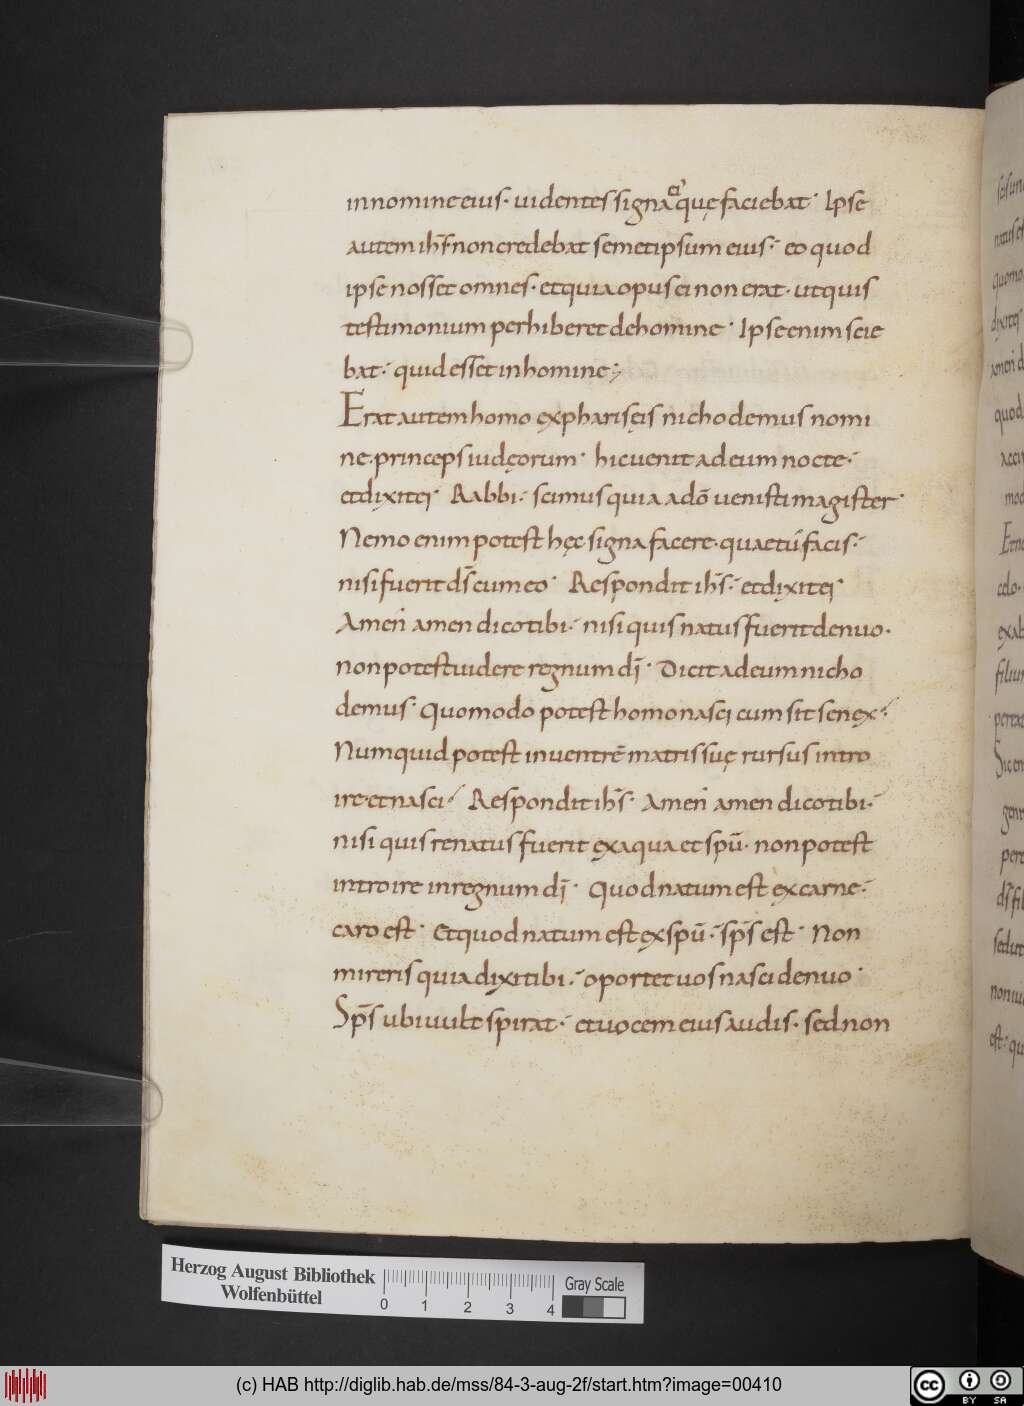 in nomine eius· uidentes signa ei' quę faciebat· Ipse
autem ihs̄ non credebat semetipsum eius· eo quod
ipse nosset omnes· et quia opus ei non erat· ut quis
testimonium perhiberet de homine· Ipse enim scie
bat· quid esset in homine;
Erat autem homo ex pharisęis nichodemus nomi
ne· princeps iudęorum· hic uenit ad eum nocte·
et dixit ei· Rabbi· scimus quia a dō uenisti magister·
Nemo enim potest hęc signa facere· quae tú facis·
nisi fuerit ds̄ cum eo· Respondit ihs̄· et dixit ei·
Amen amen dico tibi· nisi quis natus fuerit denuo·
non potest uidere regnum dī· Dicit ad eum nicho
demus· Quomodo potest homo nasci cum sit senex·
Numquid potest in uentrē matris suę rursus intro
ire· et nasci· Respondit ihs̄· Amen amen dico tibi·
nisi quis renatus fuerit ex aqua et spū· non potest
introire in regnum dī· Quod natum est ex carne·
caro est· Et quod natum est ex spū· sps̄ est· Non
mireris quia dixi tibi· oportet uos nasci denuo·
Sps̄ ubi uult spirat· et uocem eius audis· sed non
Herzog August Bibliothek
Wolfenbüttel
0 1 2 3 4
Gray Scale
(c) HAB http://diglib.hab.de/mss/84-3-aug-2f/start.htm?image=00410
cc BY SA